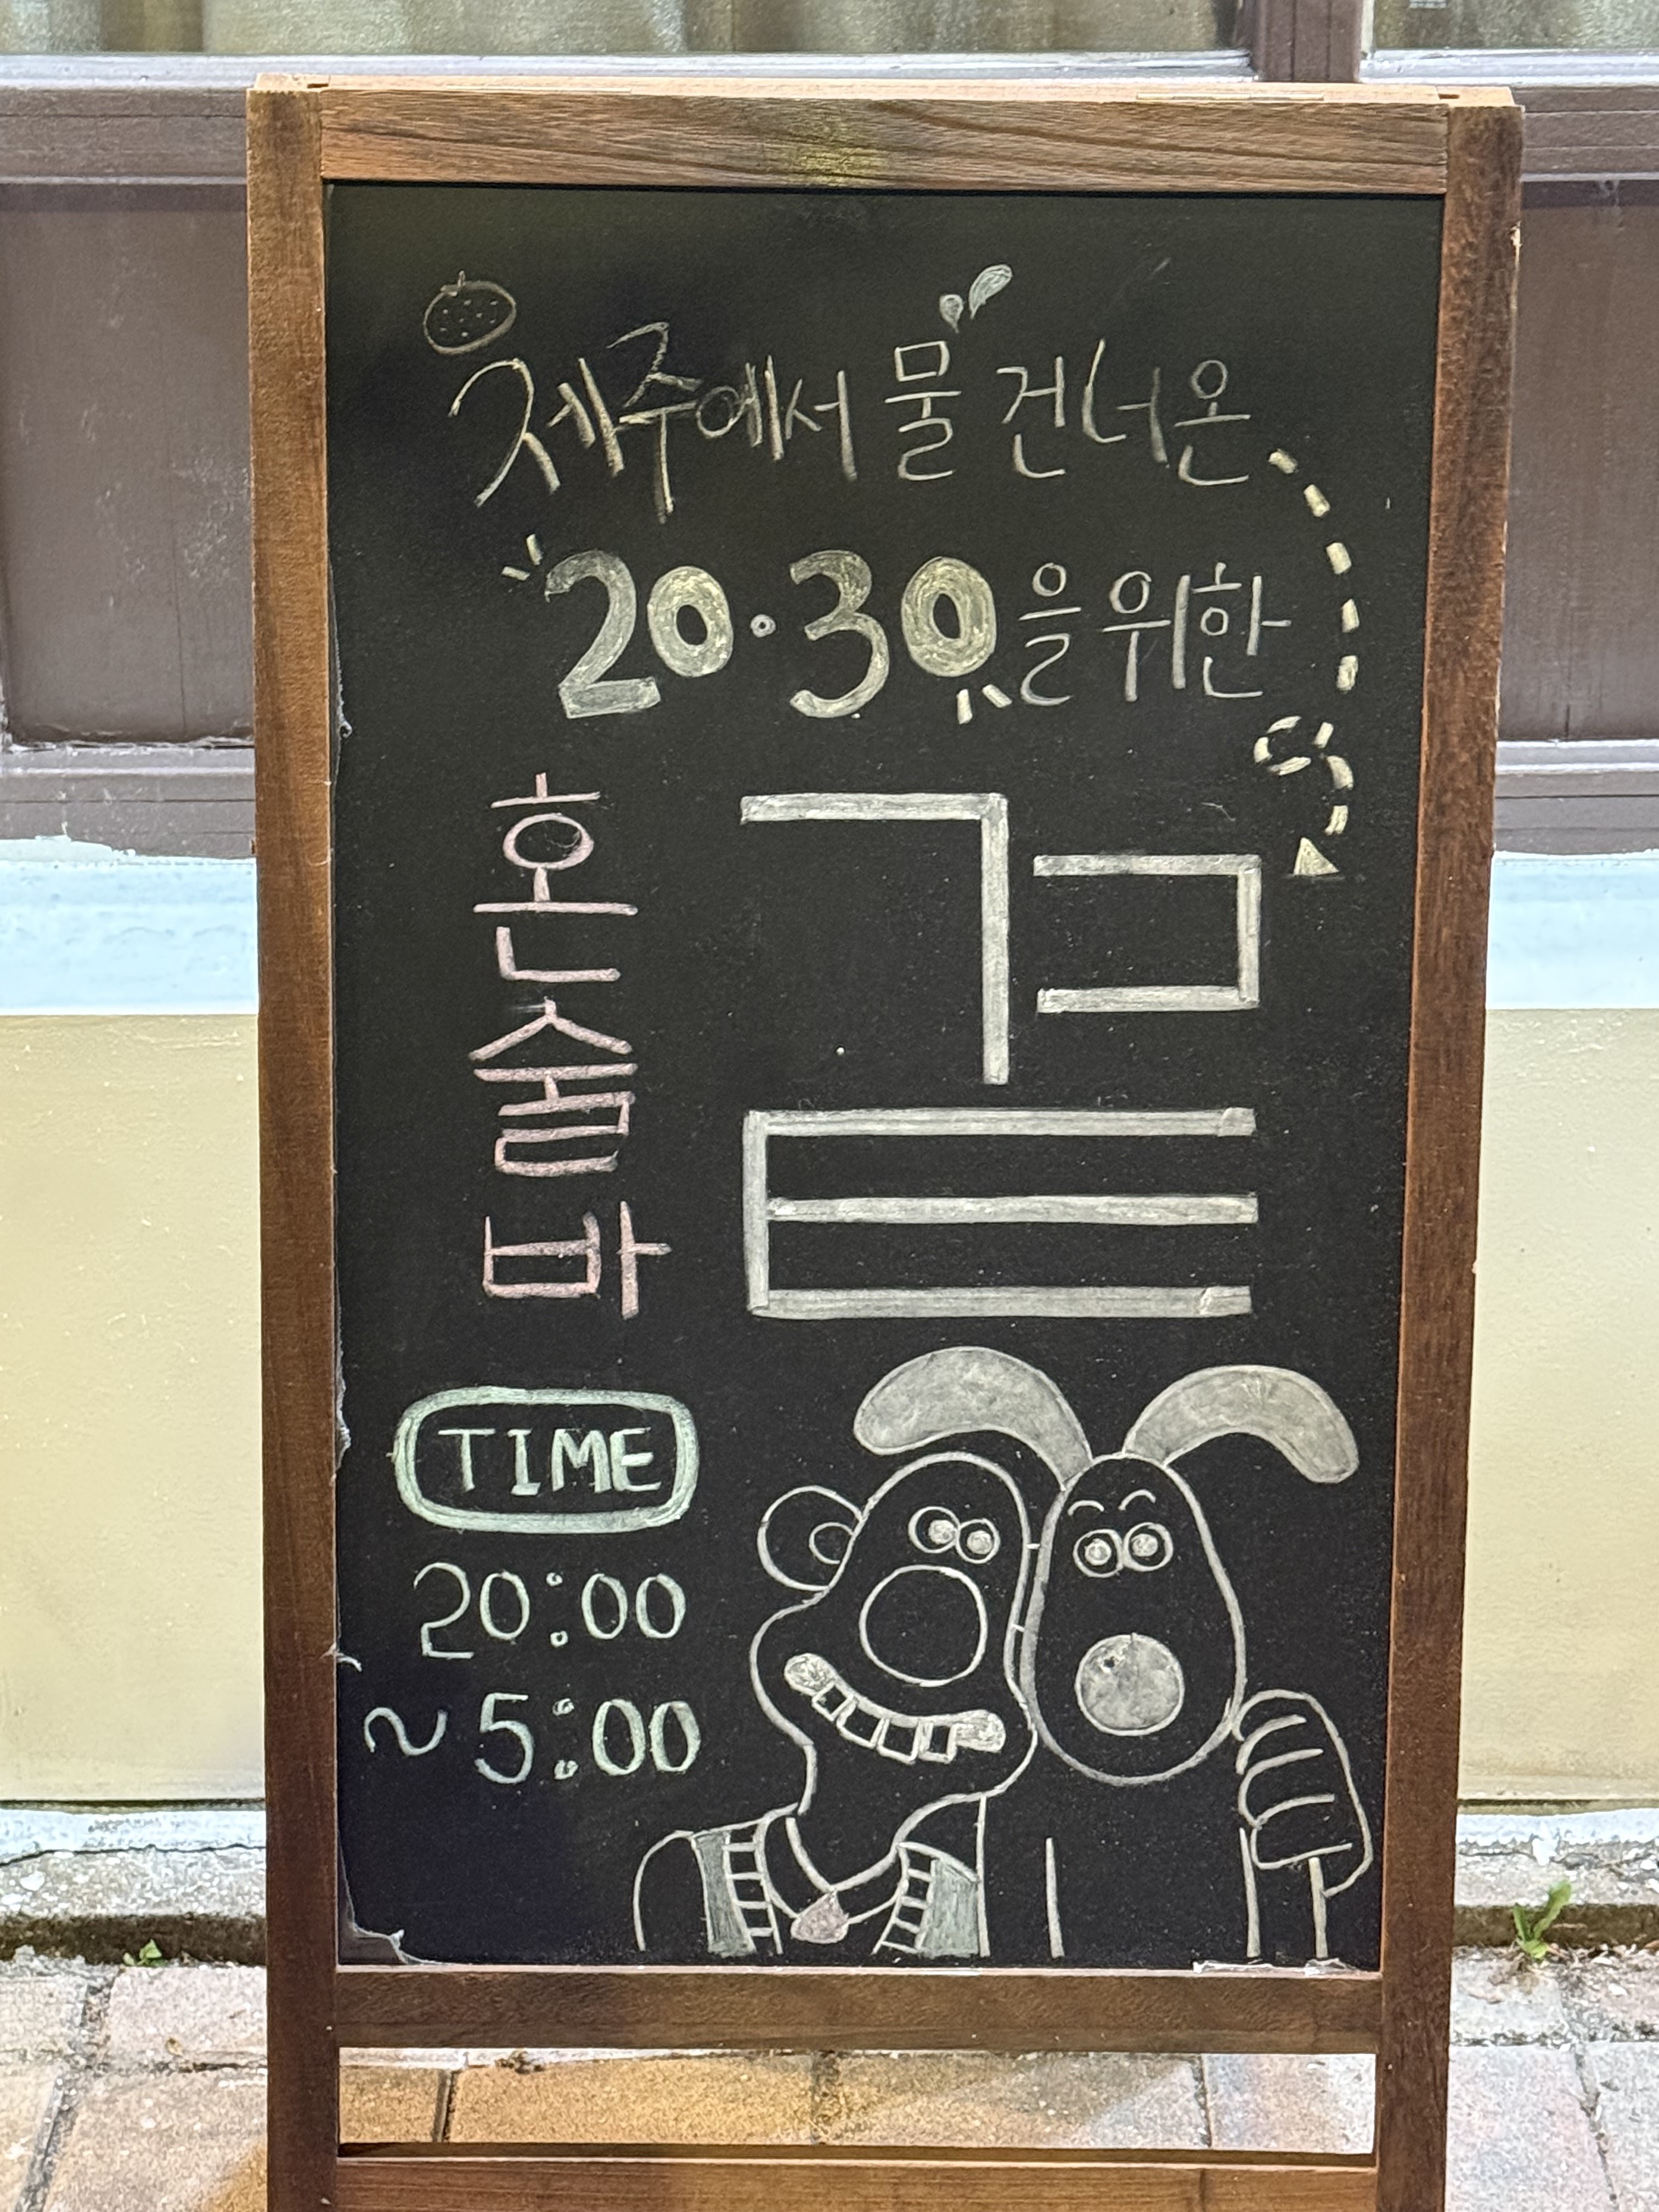 제주에서 물 건너온
20·30을 위한
혼술바
TIME
20:00
~ 5:00